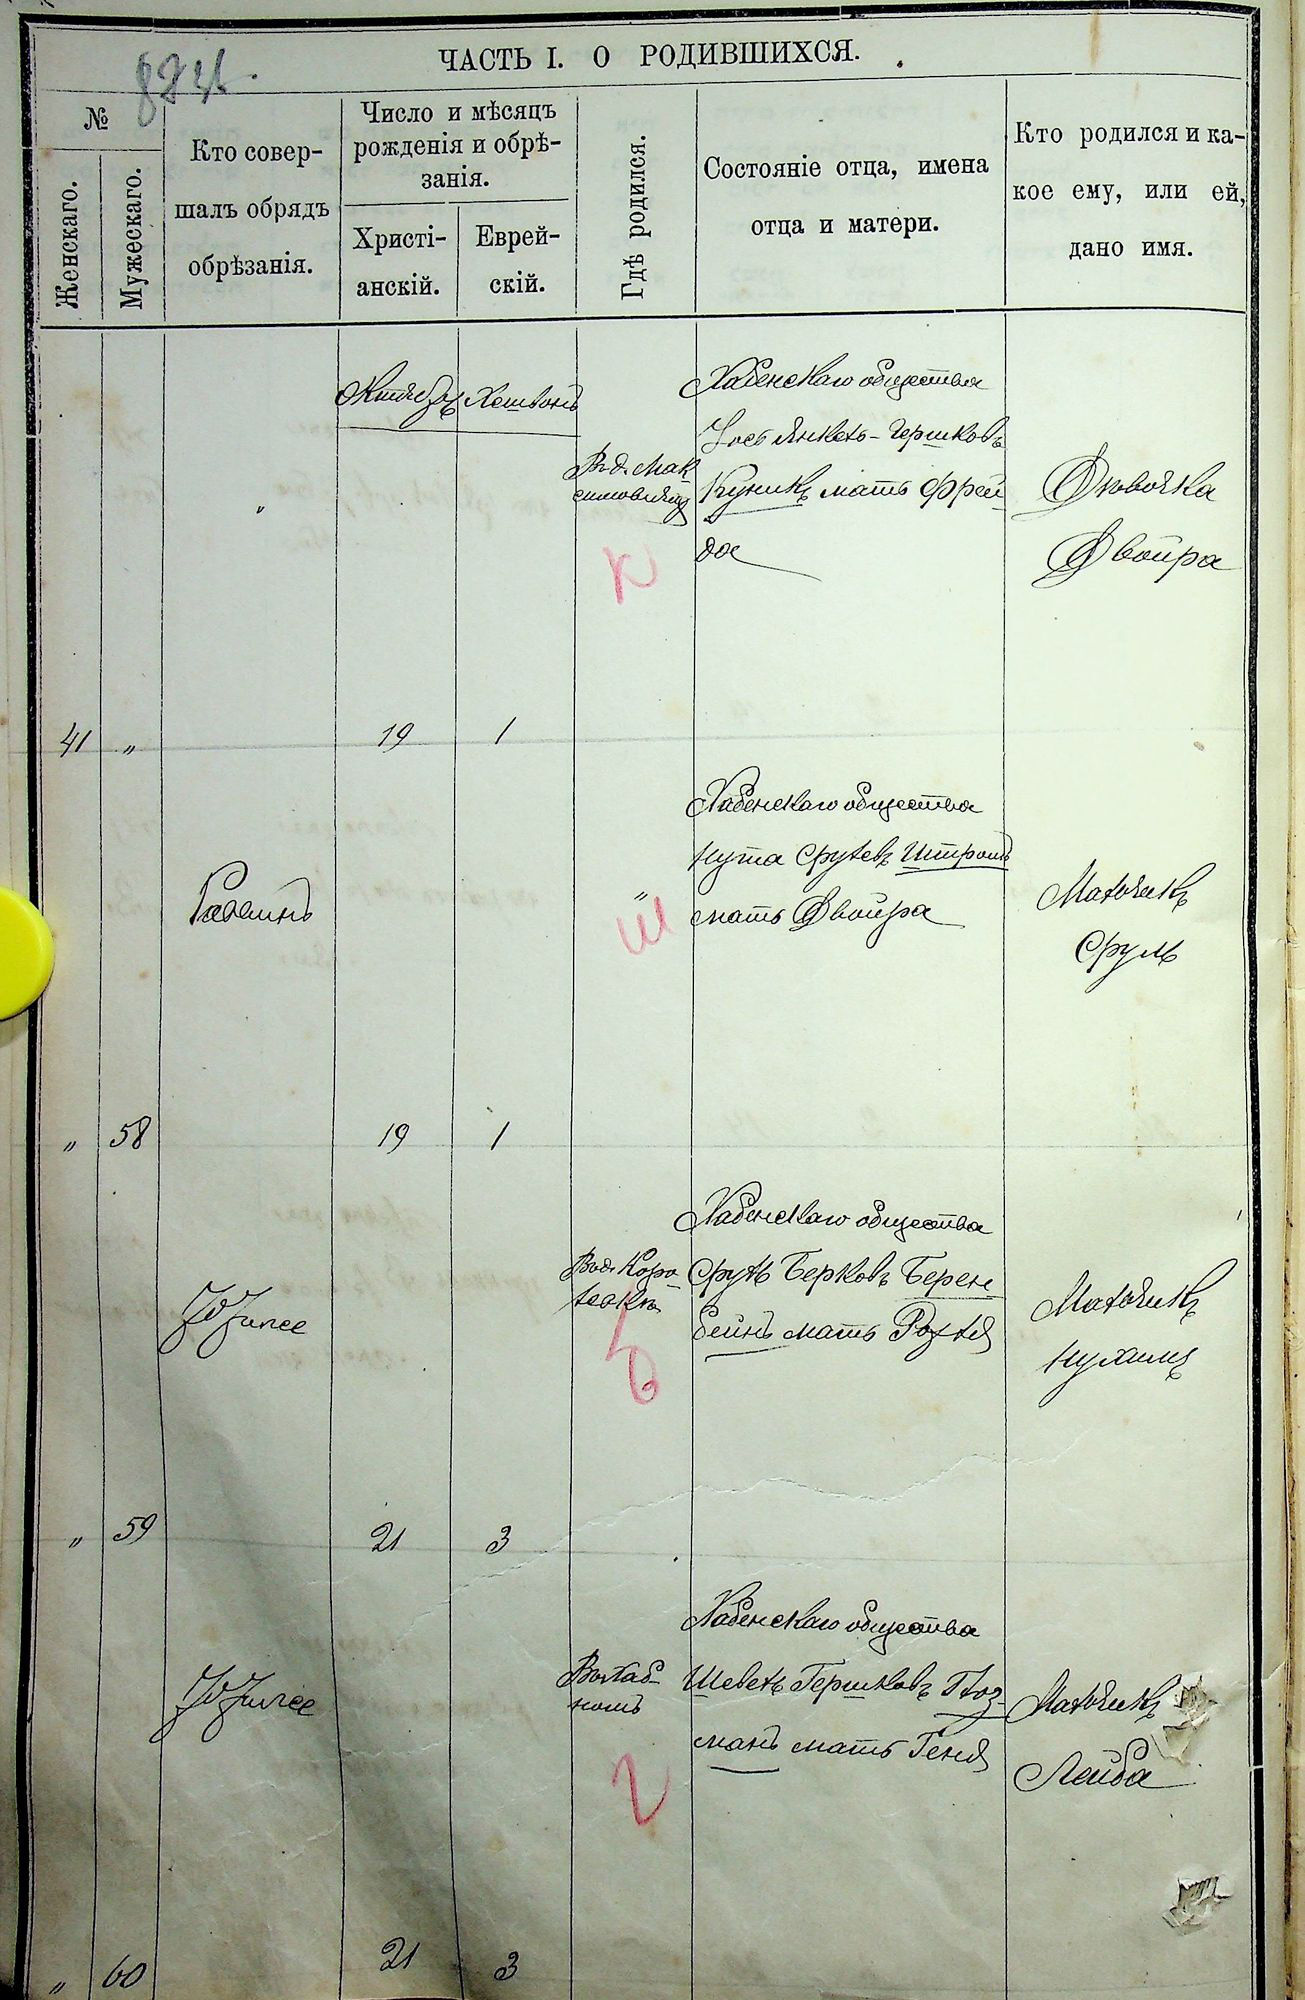 ЧАСТЬ I. О РОДИВШИХСЯ.
№
Женскаго.
Мужескаго.
Кто совер-
шалъ обрядъ
обрѣзанія.
Число и мѣсяцъ
рожденія и обрѣ-
занія.
Христі-
анскій.
Еврей-
скій.
Гдѣ родился.
Состояніе отца, имена
отца и матери.
Кто родился и ка-
кое ему, или ей,
дано имя.
Октябрь Хешвонъ
Хабенскаго общества
Іось Янкель-Гершковъ
Куникъ мать Фрей
да
В д. Мак
симовичах
К
Дѣвочка
Двойра
41 „ 19 1
Рабинъ
„
Ш
Хабенскаго общества
Нута Срулевъ Штромъ
мать Двойра
Мальчикъ
Сруль
„ 58 19 1
Хабенскаго общества
Сруль Берковъ Берен
бейнъ мать Рохля
Б
Мальчикъ
Нухимъ
„ 59 21 3
Хабенскаго общества
Шевель Гершковъ Глоз-
манъ мать Геня
Г
Мальчикъ
Лейба
„ 60 21 3